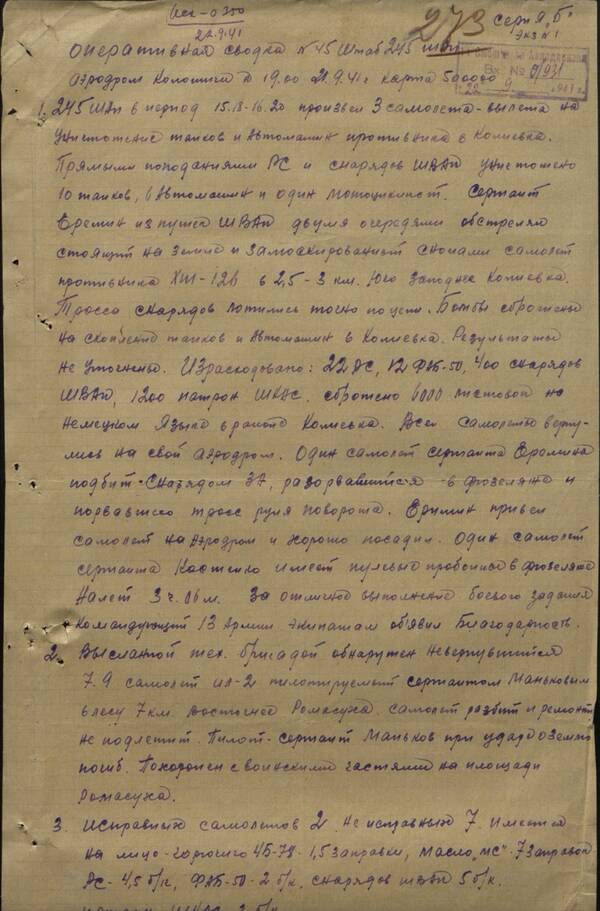 22.9.41
273
серия „Б"
экз N 1
Оперативная сводка N 45 Штаб 245 шап
Аэродром к 19.00 21.9.41г карта 500000
Вх. №
1. 245 ШАП в период 15.18-16.20 произвел 3 самолета-вылета на
уничтожение танков и автомашин противника в Колиевка.
Прямыми поподаниями РС и снарядов ШВАК уничтожено
10 танков, 6 автомашин и один мотоциклист. Сержант
Еремин из пушек ШВАК двумя очередями обстрелял
стоящий на земле и замаскированный снопами самолет
противника ХШ-126 в 2,5-3 км. Юго западнее Колиевка.
Трасса снарядов ложились точно по цели. Бомбы сброшены
на скопление танков и автомашин в Колиевка. Результаты
не уточнены. Израсходовано: 22 РС, 12 ФАБ-50, 400 снарядов
ШВАК, 1200 патрон ШКАС, сброшено 6000 листовой на
немецком языке в районе Колиевка. Все самолеты верну-
лись на свой аэродром. Один самолет сержанта Еремина
подбит снарядом ЗА, разорвавшийся в фюзеляже и
порвавшего тросс руля поворота. Еримин привел
самолет на аэродром и хорошо посадил. Один самолет
сержанта Костенко имеет пулевые пробоины в фюзеляже
Налет 3 ч. 06 м. За отличное выполнение боевого задания
Командующий 13 Армии экипажам обявил Благодарность.
2. Высланной тех. бригадой обнаружен невернувшийся
7.9 самолет ил-2 пилотируемый сержантом Маньковым
в лесу 7 км. восточнее Ромасуха. самолет разбит и ремонт
не подлежит. Пилот-сержант Маньков при ударе о землю
погиб. Похоронен с воинскими частями на площади
Ромасуха.
3. Исправных самолетов 2. Не исправных 7. Имеется
на лицо-горючего 4Б-78-1,5 заправки, масло „МС"-7 заправок
РС-4,5 б/к, ФАБ-50-2 б/к, снарядов швак 5 б/к.